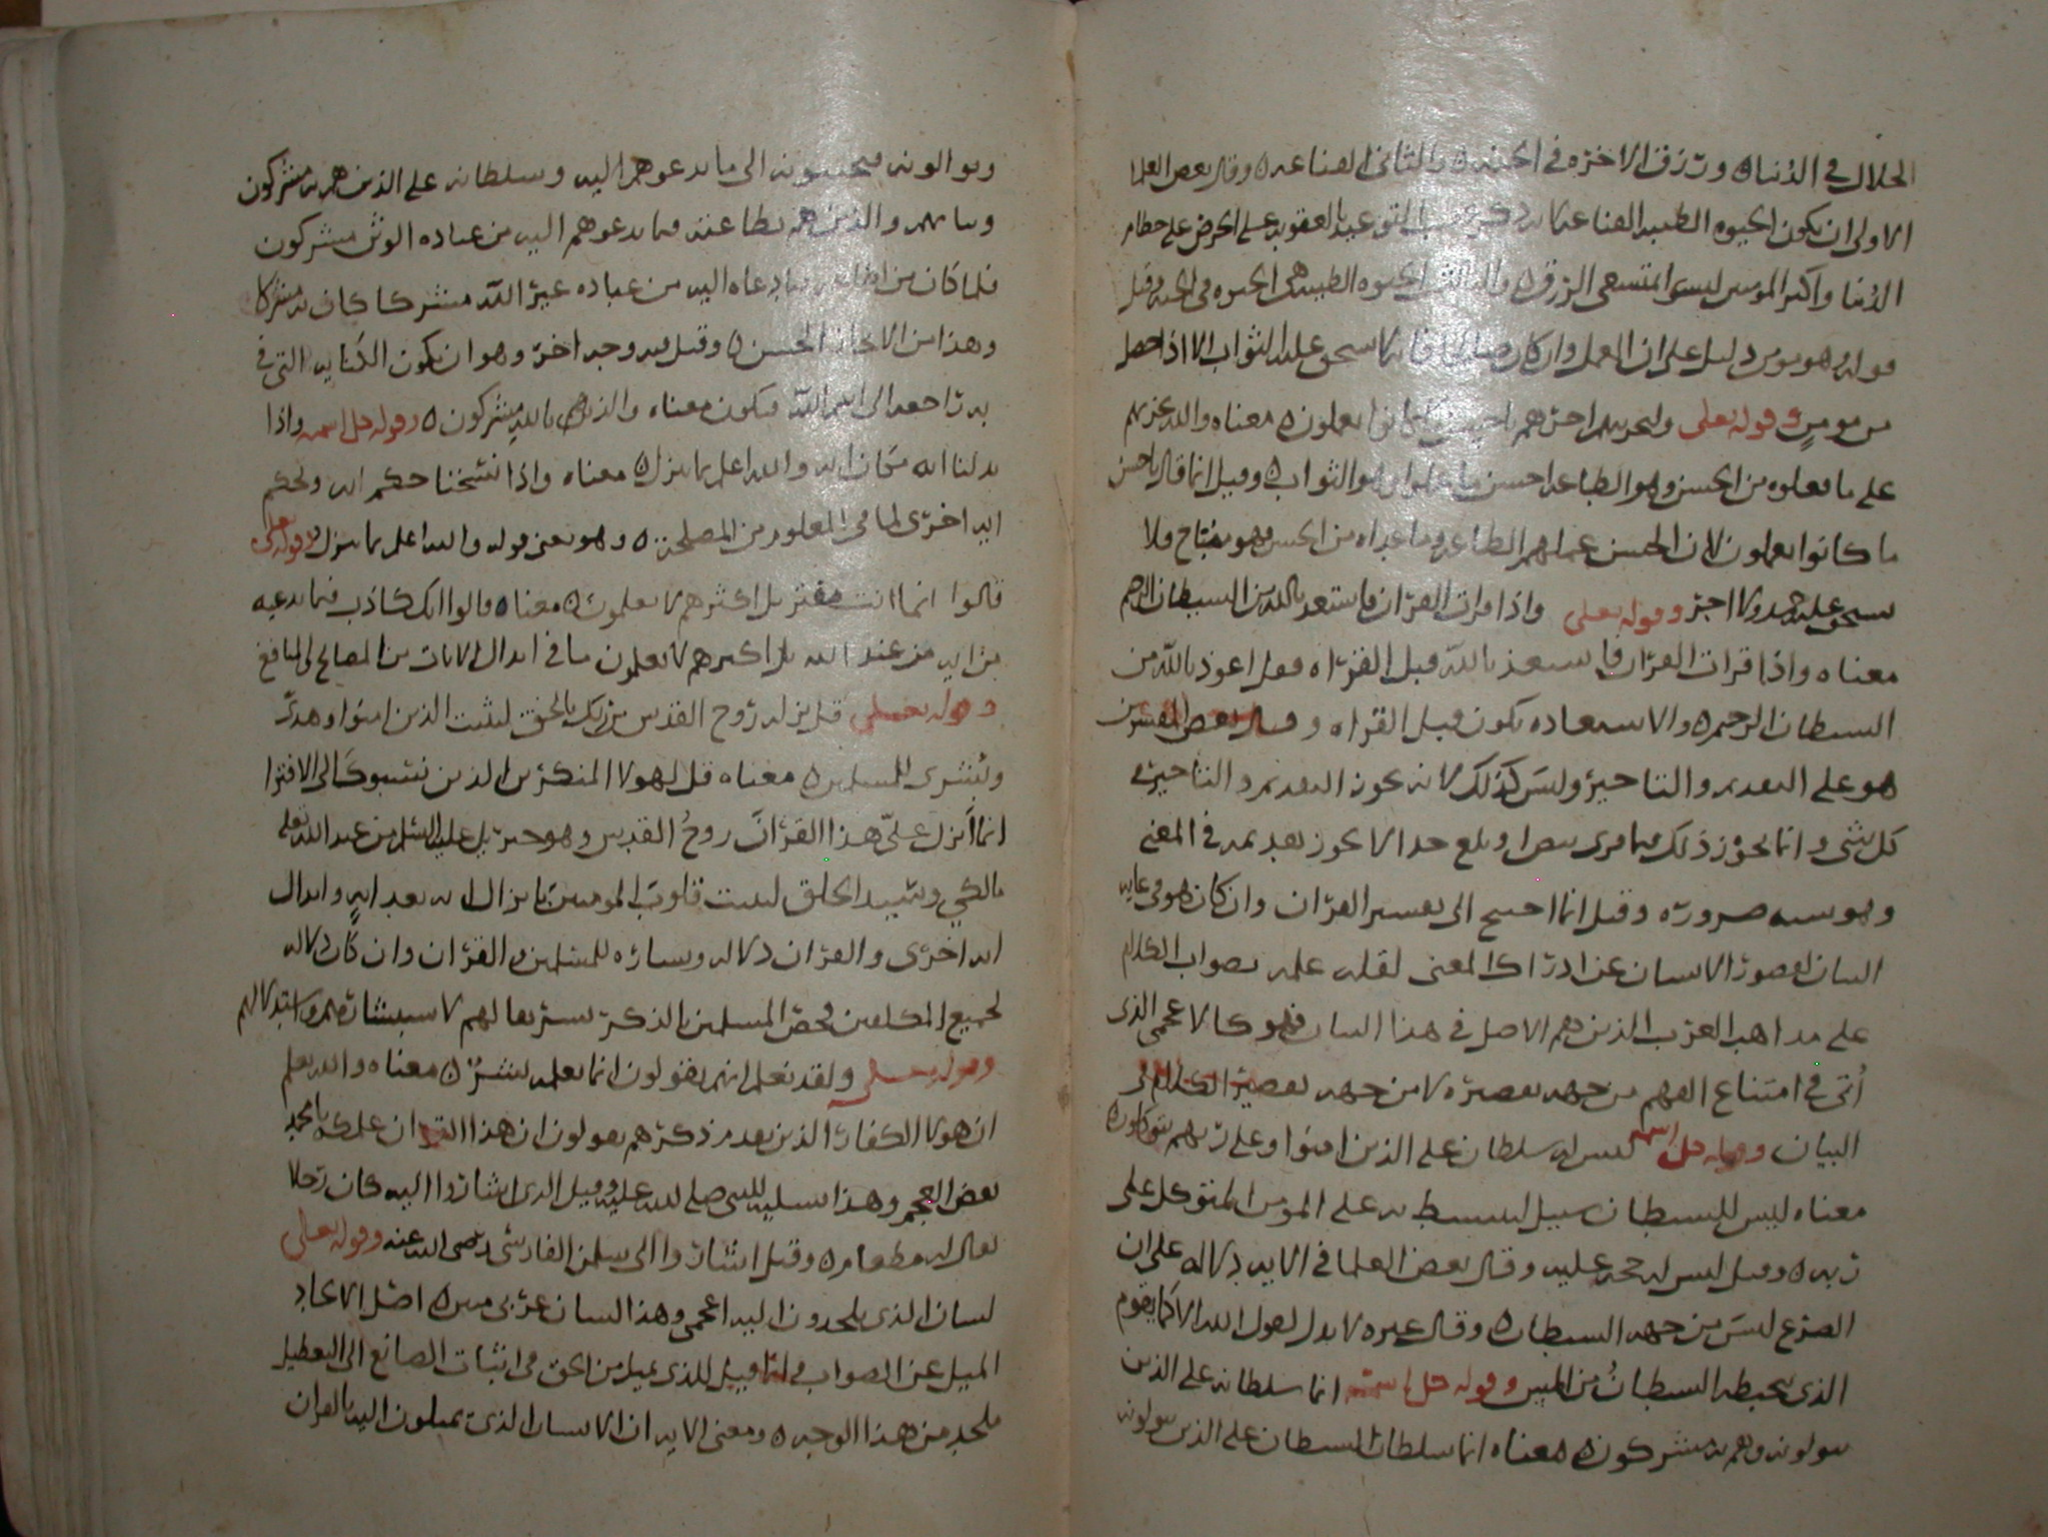 الحلال في الدنيا ورزق الاخره في الجنه والثاني القناعه وقال بعض العلما
الاولى ان يكون الحيوه الطيبه القناعه لانه ذكر عقيب التوعد بالعقوبه على الحرص على حطام
الدنيا واكثر المومنين ليسوا بمتسعي الرزق والثالث الحيوه الطيبه هي الحيوه في الجنه وقيل
قوله وهو مومن دليل على ان العمل وان كان صالحا فانه لا يستحق عليه الثواب الا اذا حصل
من مومن وقوله تعلى ولنجزينهم اجرهم باحسن ما كانوا يعملون معناه والله نجزيهم
على ما يعملوه من الحسن وهو الطاعه احسن ما عملوا وهو الثواب وقيل انما قال باحسن
ما كانوا يعملون لان الحسن عملهم الطاعه وما عداه من الحسن وهو مباح فلا
يستحق عليه حمد ولا اجر وقوله تعلى واذا قرات القران فاستعذ بالله من الشيطان الرجيم
معناه واذا قرات القران فاستعذ بالله قبل القراه فقل اعوذ بالله من
الشيطان الرجيم والاستعاذه تكون قبل القراه وقال بعض المفسرين
هو على التقديم والتاخير وليس كذلك لانه لا يجوز التقديم والتاخير في
كل شي وانما يجوز ذلك فيما فيه وبلغ حدا لا يجوز تقديمه في المعنى
وهو ضروره وقيل انما احتيج الى تفسير القران وان كان هو في غايه
البيان لقصور الانسان عن ادراك المعنى لقله علمه بصواب الكلام
على مذاهب العرب الذين هم الاصل في هذا اللسان فهو كالاعجمي الذي
أتى في امتناع الفهم من جهه تقصيره لا من جهه تقصير الكلام في
البيان وقوله جل اسمه ليس له سلطان على الذين امنوا وعلى ربهم يتوكلون
معناه ليس للشيطان سبيل ليتسلط به على المومن المتوكل على
ربه وقيل ليس له حجه عليه وقال بعض العلما في الايه دلاله على ان
الصرع ليس من جهه الشيطان وقال غيره لا يدل لقول الله الا كما يقوم
الذي يتخبطه الشيطان من المس وقوله جل اسمه انما سلطانه على الذين
يتولونه وهم به مشركون معناه انما سلطان الشيطان على الذين يتولونه
ويوالونه فيجيبونه الى ما يدعوهم اليه وسلطانه على الذين هم به مشركون
والذين هم بطاعته فيما يدعوهم اليه من عباده الوثن مشركون
فلما كان من فيما دعاه اليه من عباده غير الله مشركا كان به مشركا
وهذا من الايجاز الحسن وقيل فيه وجه اخر وهو ان يكون الكنايه التي في
به راجعه الى اسم الله فيكون معناه والذين هم بالله مشركون وقوله جل اسمه واذا
بدلنا ايه مكان ايه والله اعلم بما ينزل معناه واذا نسخنا حكم ايه وحكم
ايه اخرى لما في المعلوم من المصلحه وهو معنى قوله والله اعلم بما ينزل وقوله تعلى
قالوا انما انت مفتر بل اكثرهم لا يعلمون معناه قالوا انك كاذب فيما تدعيه
من ايه من عند الله بل اكثرهم لا يعلمون ما في ابدال الايات من المصالح والمنافع
وقوله تعلى قل نزله روح القدس من ربك بالحق ليثبت الذين امنوا وهدى
وبشرى للمسلمين معناه قل لهولا المنكرين الذين نسبوك الى الافترا
انما أنزل عليّ هذا القران روح القدس وهو جبريل عليه السلم من عند الله تعلى
بالحق لتثبت قلوب المومنين بانزال ايه بعد ايه وابدال
ايه اخرى والقران دلاله وبشاره للمسلمين والقران وان كان دلاله
لجميع المكلفين فخص المسلمين بالذكر تشريفا لهم لاستبشارهم واستدلالهم
وقوله تعلى ولقد نعلم انهم يقولون انما يعلمه بشر معناه والله يعلم
ان هولا الكفار الذين تقدم ذكرهم يقولون ان هذا القران علمك يا محمد
بعض العجم وهذا تسليه للنبي صلى الله عليه وقيل الذي اشاروا اليه كان رجلا
يقال له وقيل اشاروا الى سلمن الفارسي رضي الله عنه وقوله تعلى
لسان الذي يلحدون اليه اعجمي وهذا لسان عربي مبين اصل الالحاد
الميل عن الصواب ولهذا قيل للذي يميل من الحق في اثبات الصانع الى التعطيل
ملحد من هذا الوجه ومعنى الايه ان الانسان الذي تميلون اليه بالقران